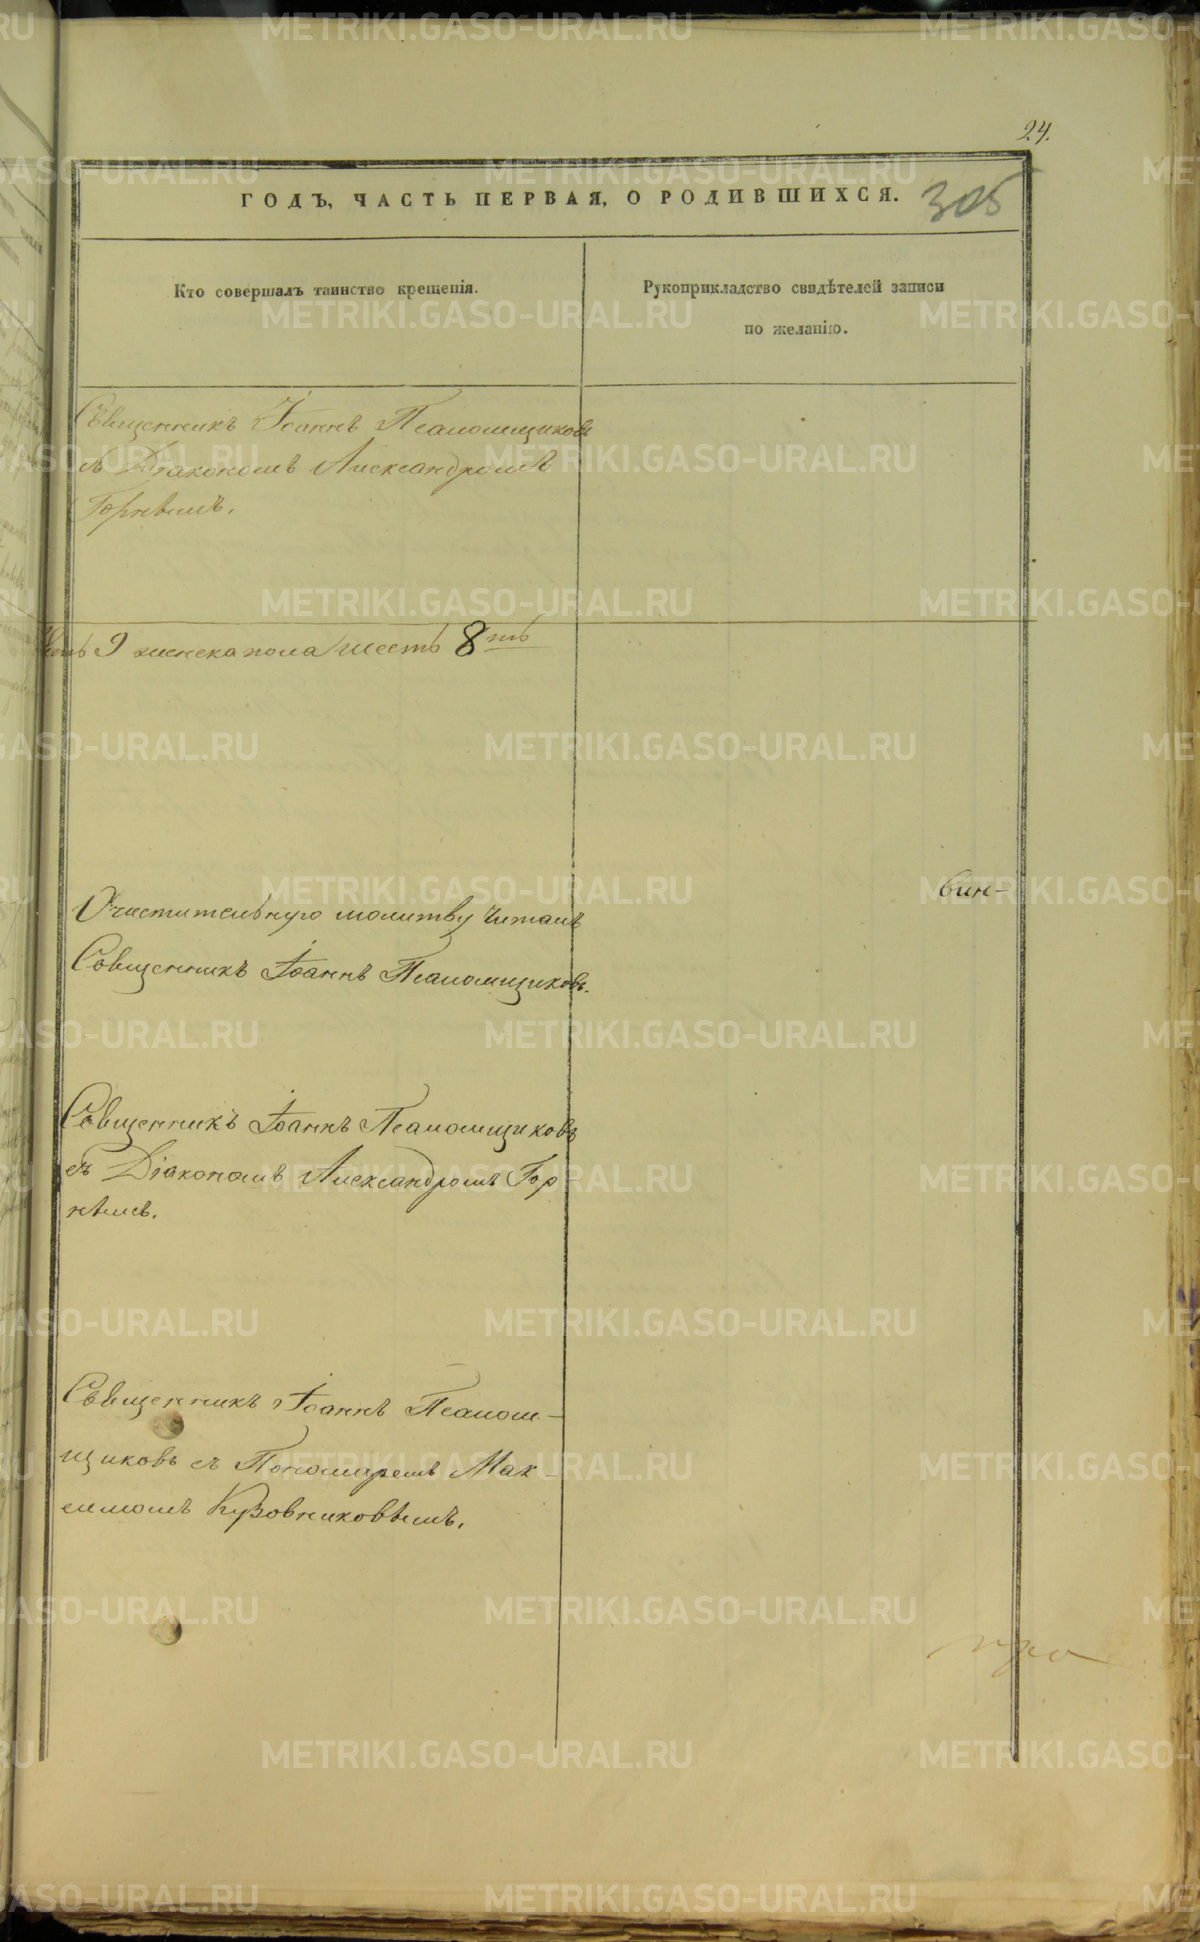 24.
ГОДЪ, ЧАСТЬ ПЕРВАЯ, О РОДИВШИХСЯ.
305
Кто совершалъ таинство крещенія.
Рукоприкладство свидѣтелей записи
по желанію.
Священникъ Іоаннъ Псаломщиковъ
съ Діакономъ Александромъ
Горнѣмъ.
9 женска пола шесть 8 тъ
вин-
Очистительную молитву читалъ
Священникъ Іоаннъ Псаломщиковъ.
Священникъ Іоаннъ Псаломщиковъ
съ Діакономъ Александромъ Гор
нѣмъ.
Священникъ Іоаннъ Псалом-
щиковъ съ Пономаремъ Мак-
симомъ Кузовниковымъ.
METRIKI.GASO-URAL.RU